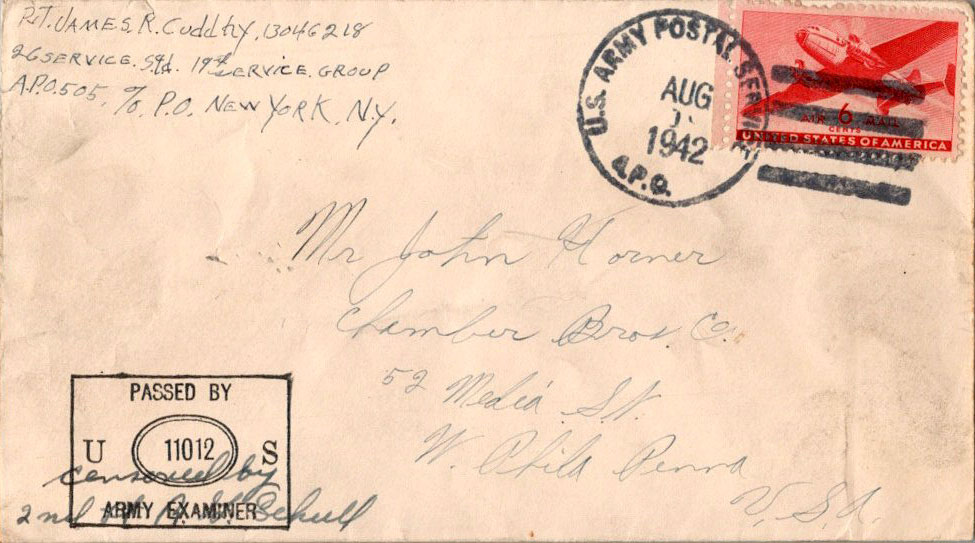 Pvt. JAMES, R. Cuddhy, 13046218
26 SERVICE. Sqd. 19th SERVICE. GROUP
A.P.O. 505, % P.O. NEW YORK, N.Y.
U.S. ARMY POSTAL SERVICE
AUG
1942
A.P.O.
AIR 6 MAIL
CENTS
UNITED STATES OF AMERICA
Mr John Horner
Chamber Bros. Co.
52 Media St.
W. Phila Penna
U.S.A.
PASSED BY
U 11012 S
ARMY EXAMINER
censored by
2nd Lt Schull